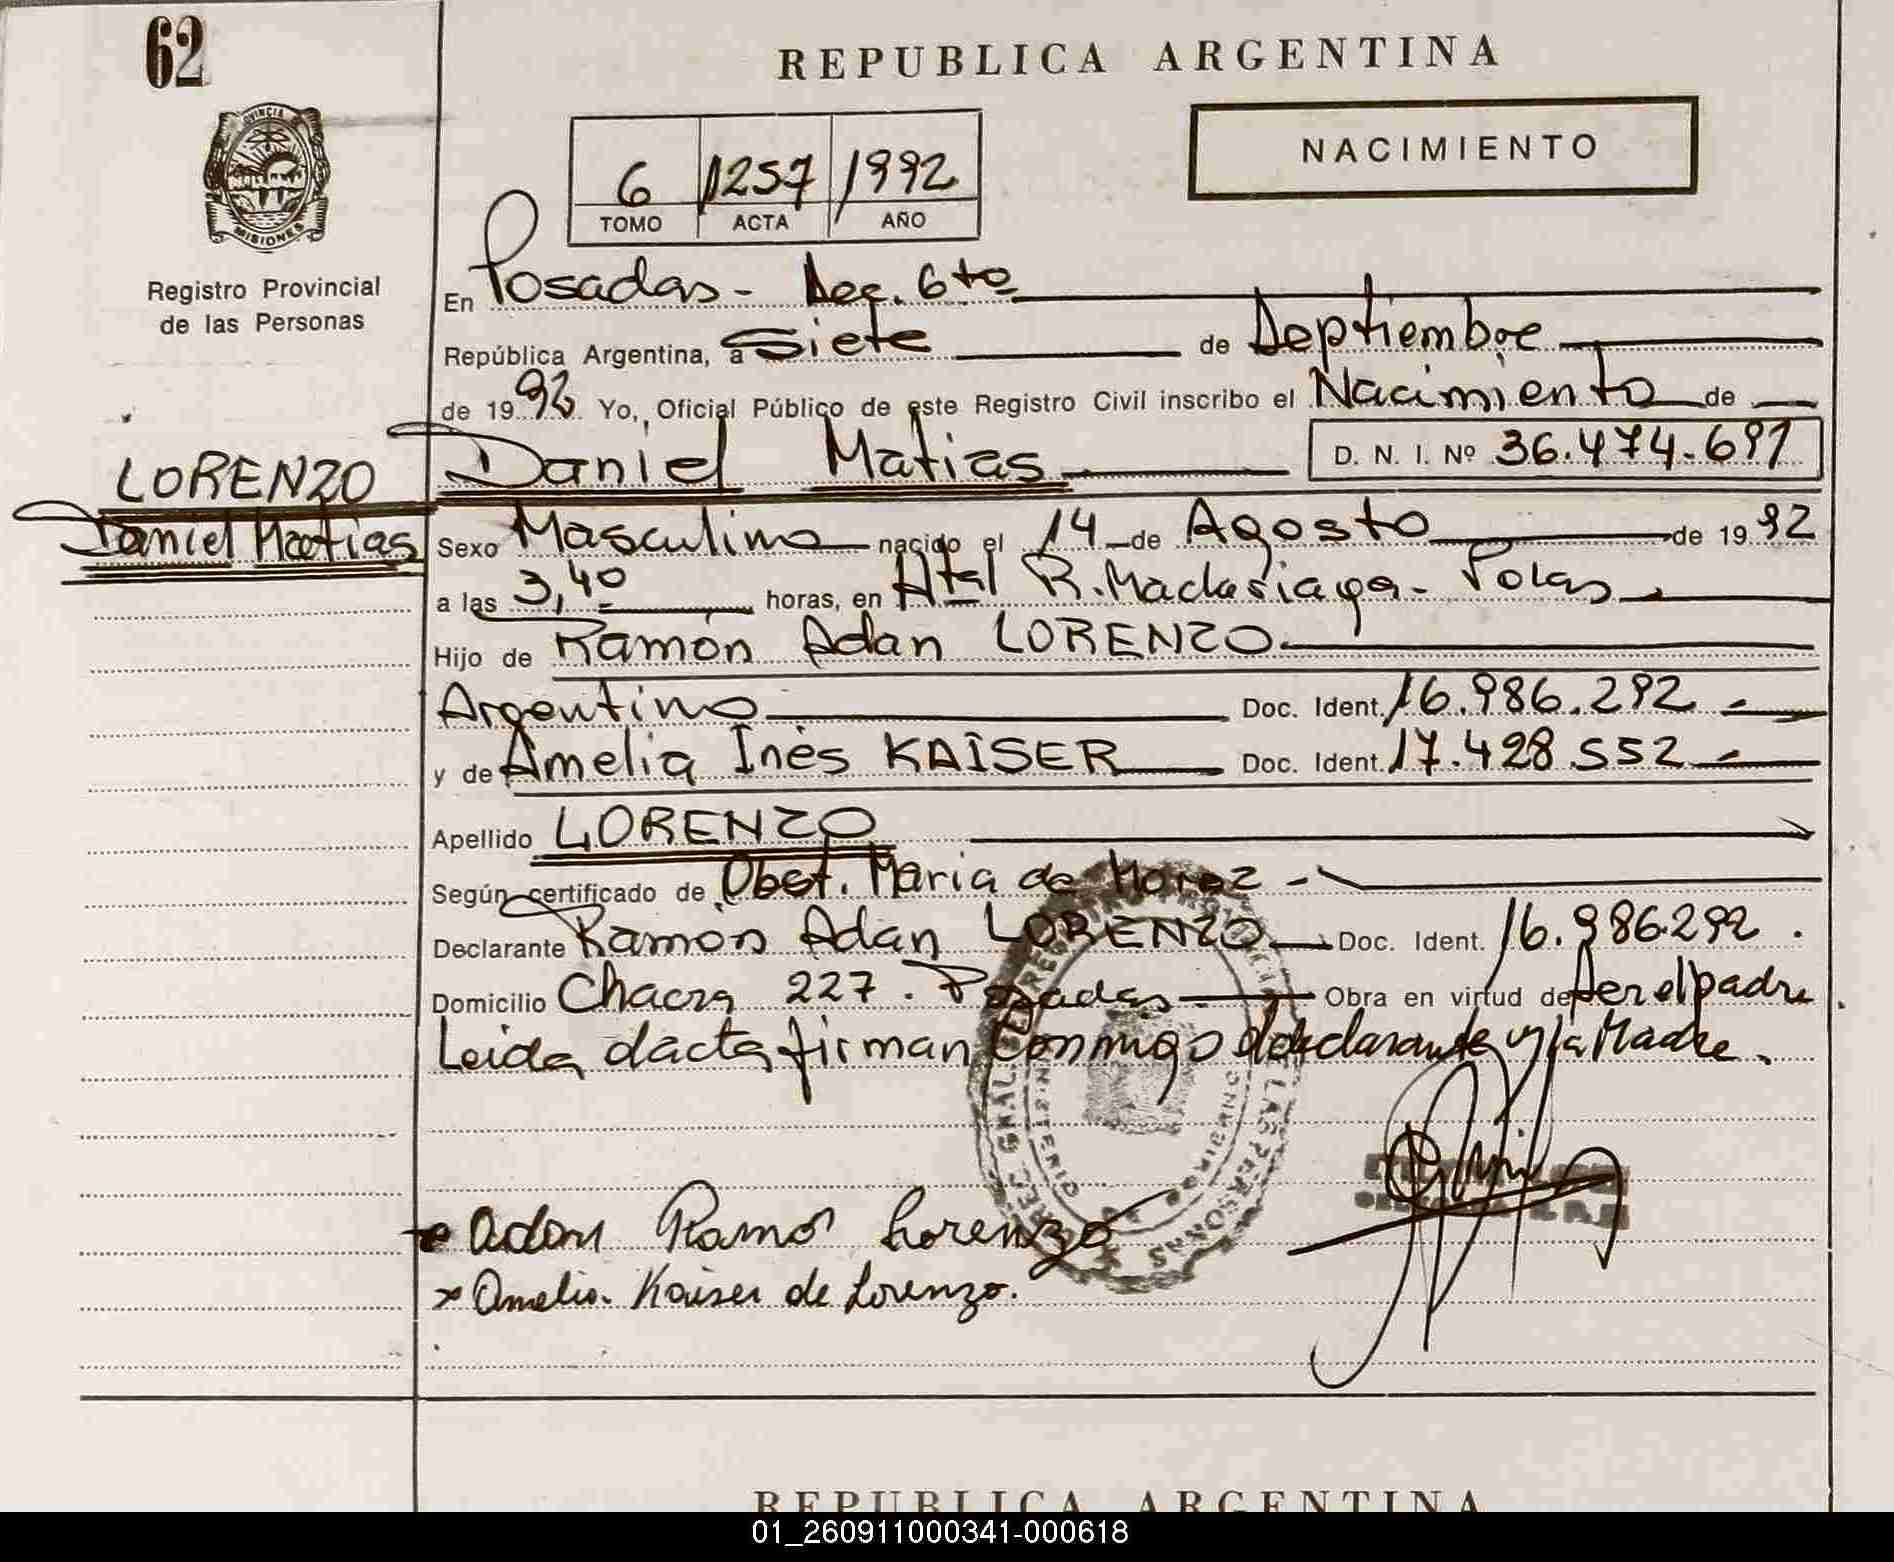 62
REPUBLICA ARGENTINA
PROVINCIA
MISIONES
Registro Provincial
de las Personas
6 1257 1992
TOMO ACTA AÑO
NACIMIENTO
En Posadas - Sec. 6to
República Argentina, a Siete de Septiembre
de 1992. Yo, Oficial Público de este Registro Civil inscribo el Nacimiento de
LORENZO
Daniel Matias
Daniel Matias D. N. I. Nº 36.474.691
Sexo Masculino nacido el 14 de Agosto de 1992
a las 3,40 horas, en Htal R. Madariaga - Pdas
Hijo de Ramón Adan LORENZO
Argentino Doc. Ident. 16.986.292
y de Amelia Inés KAISER Doc. Ident. 17.428.552
Apellido LORENZO
Según certificado de Obst. Maria de
Declarante Ramón Adan LORENZO Doc. Ident. 16.986.292.
Domicilio Chacra 227. Posadas Obra en virtud de ser el padre.
Leida el acta firman conmigo el declarante y la Madre.
Adan Ramon Lorenzo
Amelia Kaiser de Lorenzo.
REPUBLICA ARGENTINA
01_260911000341-000618